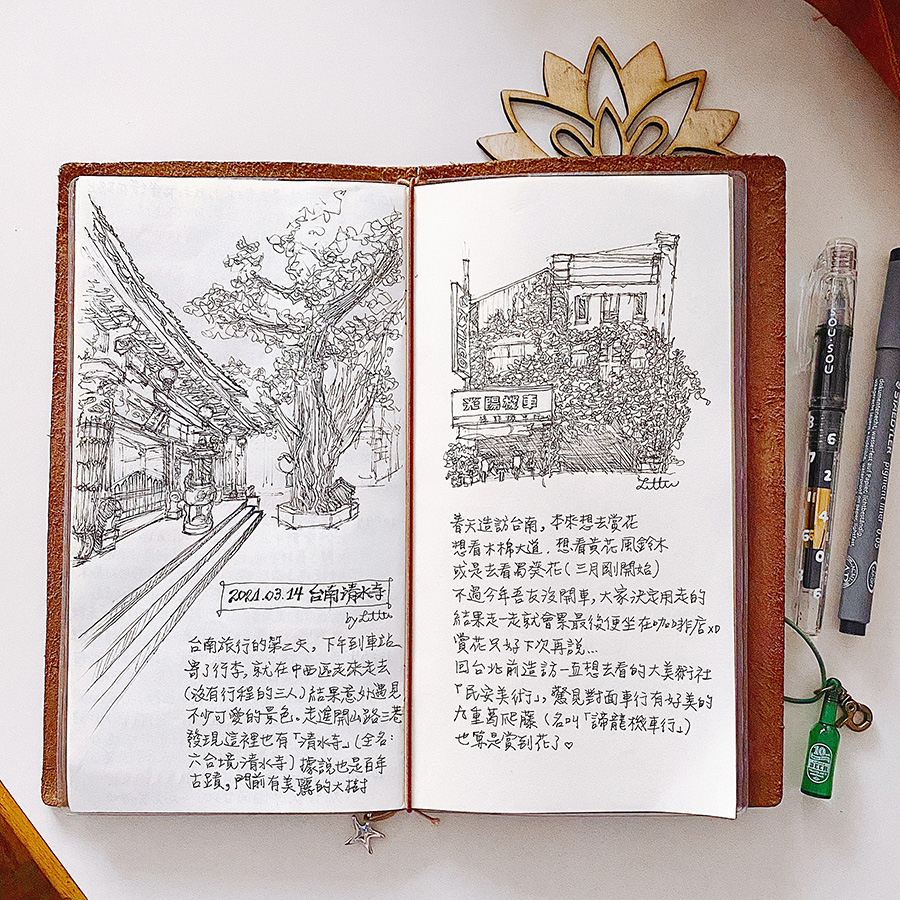 2021.03.14 台南清水寺
by Littu
台南旅行的第二天，下午到車站
寄了行李，就在中西區走來走去
(沒有行程的三人) 結果意外遇見
不少可愛的景色。走進開山路三巷
發現這裡也有「清水寺」(全名:
六合境清水寺) 據說也是百年
古蹟，門前有美麗的大樹
光陽機車
Littu
春天造訪台南，本來想去賞花
想看木棉大道，想看黃花風鈴木
或是去看蜀葵花(三月剛開始)
不過今年吾友沒開車，大家決定用走的
結果走一走就會累最後便坐在咖啡店XD
賞花只好下次再說...
回台北前造訪一直想去看的大美術社
「民安美術」，驚見對面車行有好美的
九重葛爬藤 (名叫「諦龍機車行」)
也算是賞到花了♡
SOU·SOU
6
2
4
0
STAEDTLER pigment liner 0.05
10
BEER